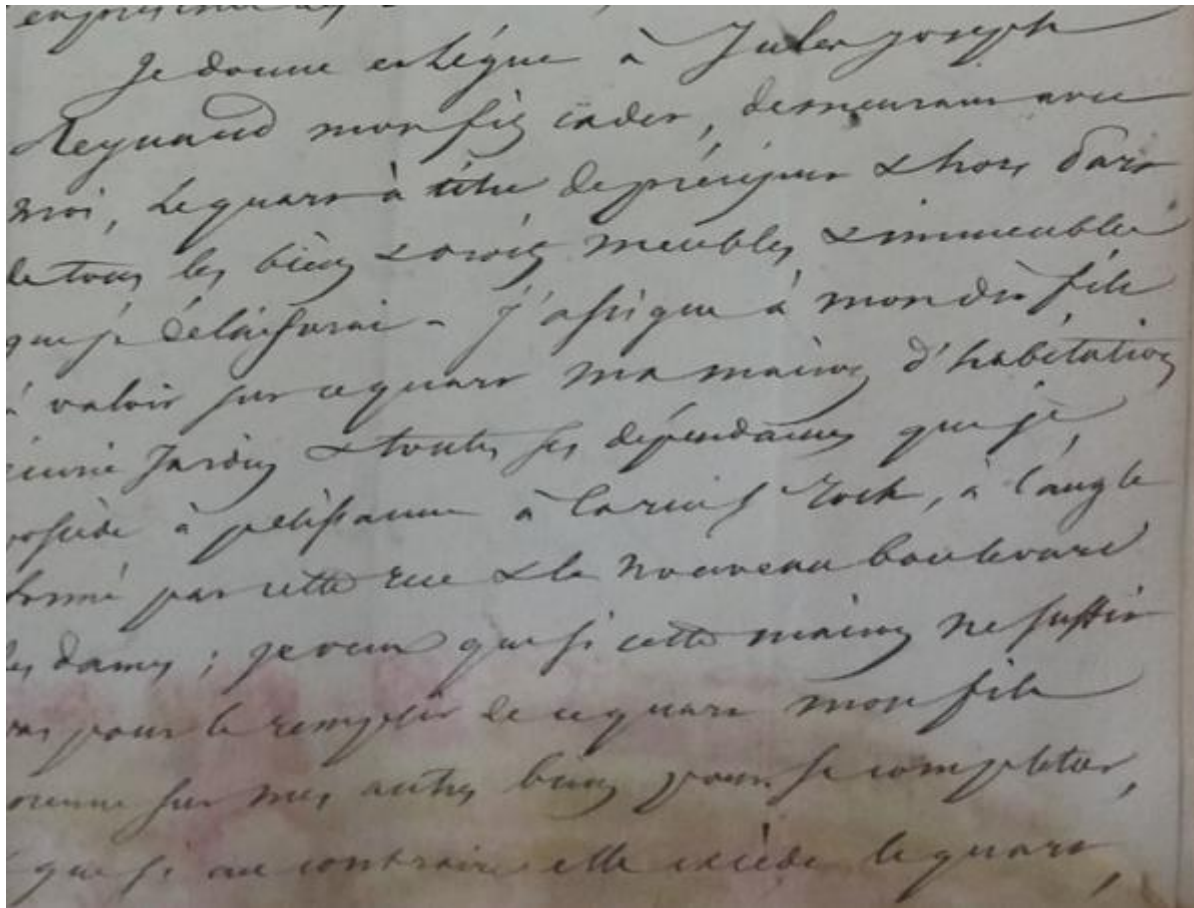 Je donne et Légue à Jules joseph
Reynaud mon fils cadet, demeurant avec
moi, Le quart à titre de préciput & hors part
de tous les biens & droits meubles & immeubles
que je délaisserai - J'assigne à mon dit fils
à valoir sur ce quart ma maison d'habitation
écurie Jardin & toutes ses dépendances que je
possède à pélissanne à la rue St Roch, à l'angle
formé par cette rue & le nouveau boulevard
des dames ; je veux que si cette maison ne suffit
pas pour le remplir de ce quart mon fils
prenne sur mes autres biens pour se completter,
& que si au contraire elle excède le quart,